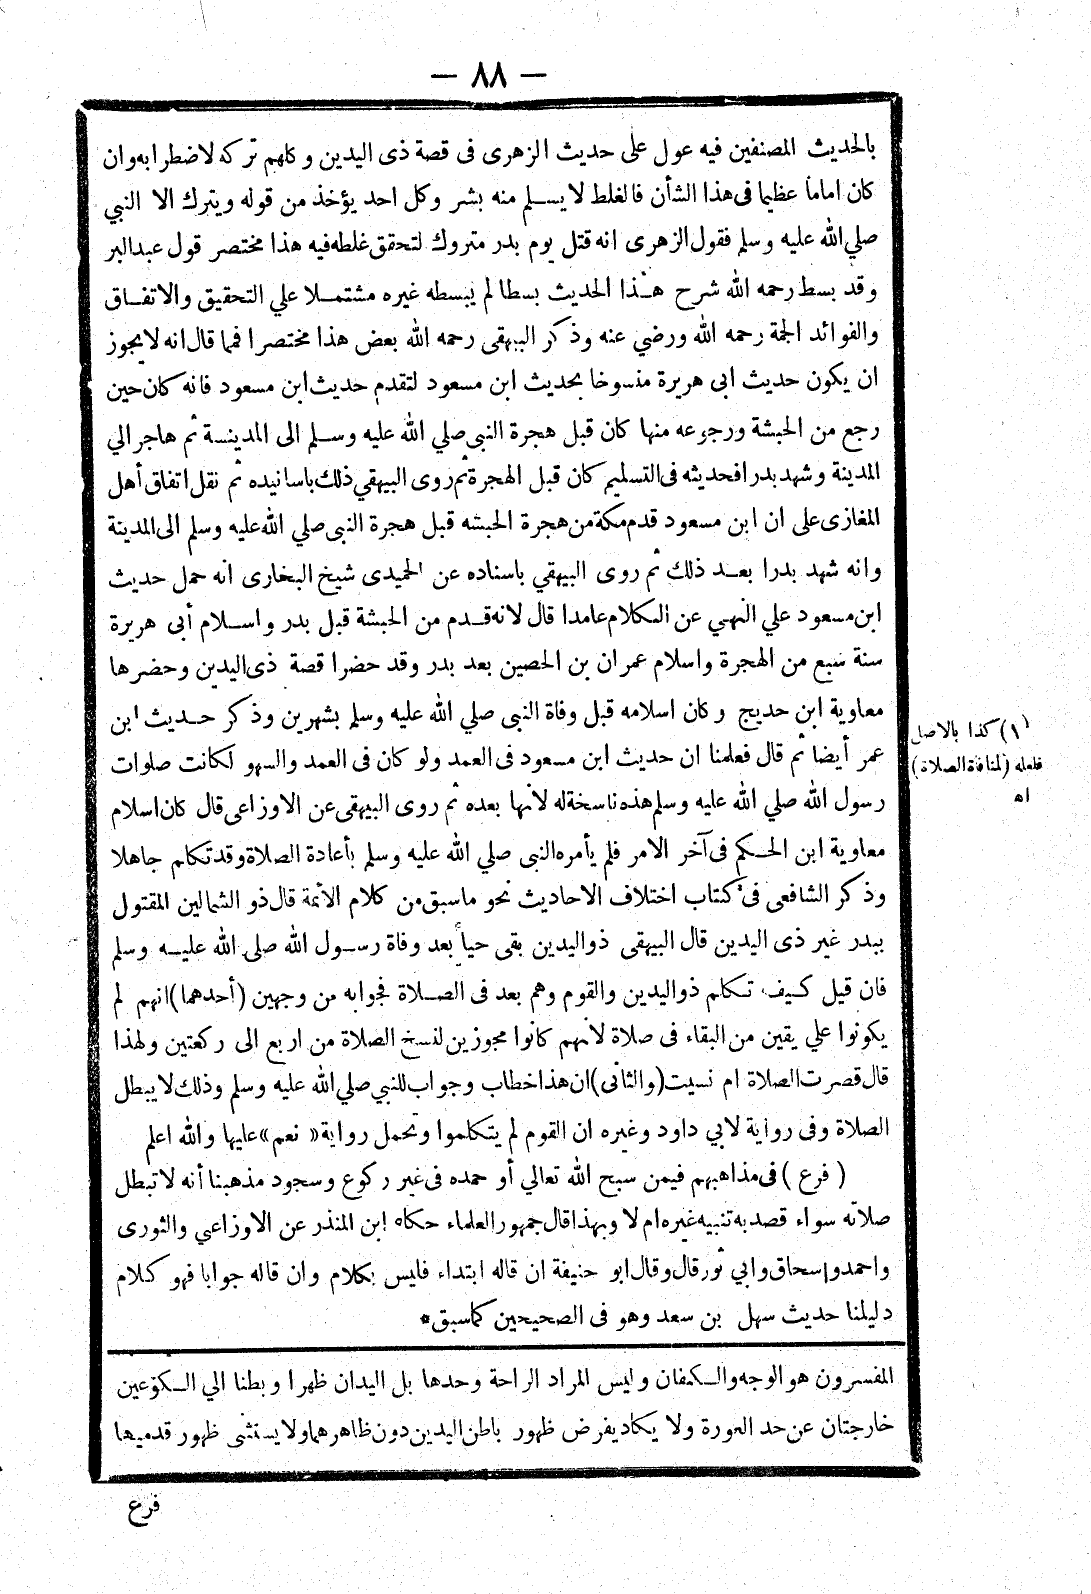 — ٨٨ —
بالحديث المصنفين فيه عول على حديث الزهرى فى قصة ذى اليدين وكلهم تركه لاضطرابه وان
كان اماما عظيما فى هذا الشأن فالغلط لا يسلم منه بشر وكل احد يؤخذ من قوله ويترك الا النبي
صلي الله عليه وسلم فقول الزهرى انه قتل يوم بدر متروك لتحقق غلطه فيه هذا مختصر قول عبد البر
وقد بسط رحمه الله شرح هذا الحديث بسطا لم يبسطه غيره مشتملا علي التحقيق والاتفاق
والفوائد الجمة رحمه الله ورضي عنه وذكر البيهقى رحمه الله بعض هذا مختصرا فمما قال انه لا يجوز
ان يكون حديث ابى هريرة منسوخا بحديث ابن مسعود لتقدم حديث ابن مسعود فانه كان حين
رجع من الحبشة ورجوعه منها كان قبل هجرة النبى صلي الله عليه وسلم الى المدينسة ثم هاجر الي
المدينة وشهد بدرا فحديثه فى التسليم كان قبل الهجرة ثم روى البيهقي ذلك باسانيده ثم نقل اتفاق أهل
المغازى على ان ابن مسعود قدم مكة من هجرة الحبشه قبل هجرة النبى صلي الله عليه وسلم الى المدينة
وانه شهد بدرا بعد ذلك ثم روى البيهقي باسناده عن الحميدى شيخ البخارى انه حمل حديث
ابن مسعود علي النهى عن الكلام عامدا قال لانه قدم من الحبشة قبل بدر واسلام أبى هريرة
سنة سبع من الهجرة واسلام عمران بن الحصين بعد بدر وقد حضرا قصة ذى اليدين وحضرها
معاوية ابن حديج وكان اسلامه قبل وفاة النبى صلي الله عليه وسلم بشهرين وذكر حديث ابن
عمر أيضا ثم قال فعلمنا ان حديث ابن مسعود فى العمد ولو كان فى العمد والسهو لكانت صلوات
رسول الله صلي الله عليه وسلم هذه ناسخة له لانها بعده ثم روى البيهقى عن الاوزاعى قال كان اسلام
معاوية ابن الحكم فى آخر الامر فلم يأمره النبى صلي الله عليه وسلم بأعادة الصلاة وقد تكلم جاهلا
وذكر الشافعى فى كتاب اختلاف الاحاديث نحو ما سبق من كلام الائمة قال ذو الشمالين المقتول
ببدر غير ذى اليدين قال البيهقى ذو اليدين بقى حيا بعد وفاة رسول الله صلى الله عليه وسلم
فان قيل كيف تكلم ذو اليدين والقوم وهم بعد فى الصلاة فجوابه من وجهين (أحدهما) انهم لم
يكونوا علي يقين من البقاء فى صلاة لانهم كانوا مجوزين لنسخ الصلاة من اربع الى ركعتين ولهذا
قال قصرت الصلاة ام نسيت (والثانى) ان هذا خطاب وجواب للنبي صلي الله عليه وسلم وذلك لا يبطل
الصلاة وفى رواية لابي داود وغيره ان القوم لم يتكلموا وتحمل رواية «نعم» عليها والله اعلم
(فرع) فى مذاهبهم فيمن سبح الله تعالي أو حمده فى غير ركوع وسجود مذهبنا أنه لا تبطل
صلاته سواء قصد به تنبيه غيره ام لا وبهذا قال جمهور العلماء حكاه ابن المنذر عن الاوزاعي والثورى
واحمد وإسحاق وابي ثور قال وقال ابو حنيفة ان قاله ابتداء فليس بكلام وان قاله جوابا فهو كلام
دليلنا حديث سهل بن سعد وهو فى الصحيحين كما سبق *
(١) كذا بالاصل
فلعله (لمنافاة الصلاة)
اه
المفسرون هو الوجه والكفان وليس المراد الراحة وحدها بل اليدان ظهرا وبطنا الي الكوعين
خارجتان عن حد العورة ولا يكاد يفرض ظهور باطن اليدين دون ظاهرهما ولا يستثنى ظهور قدميها
فرع